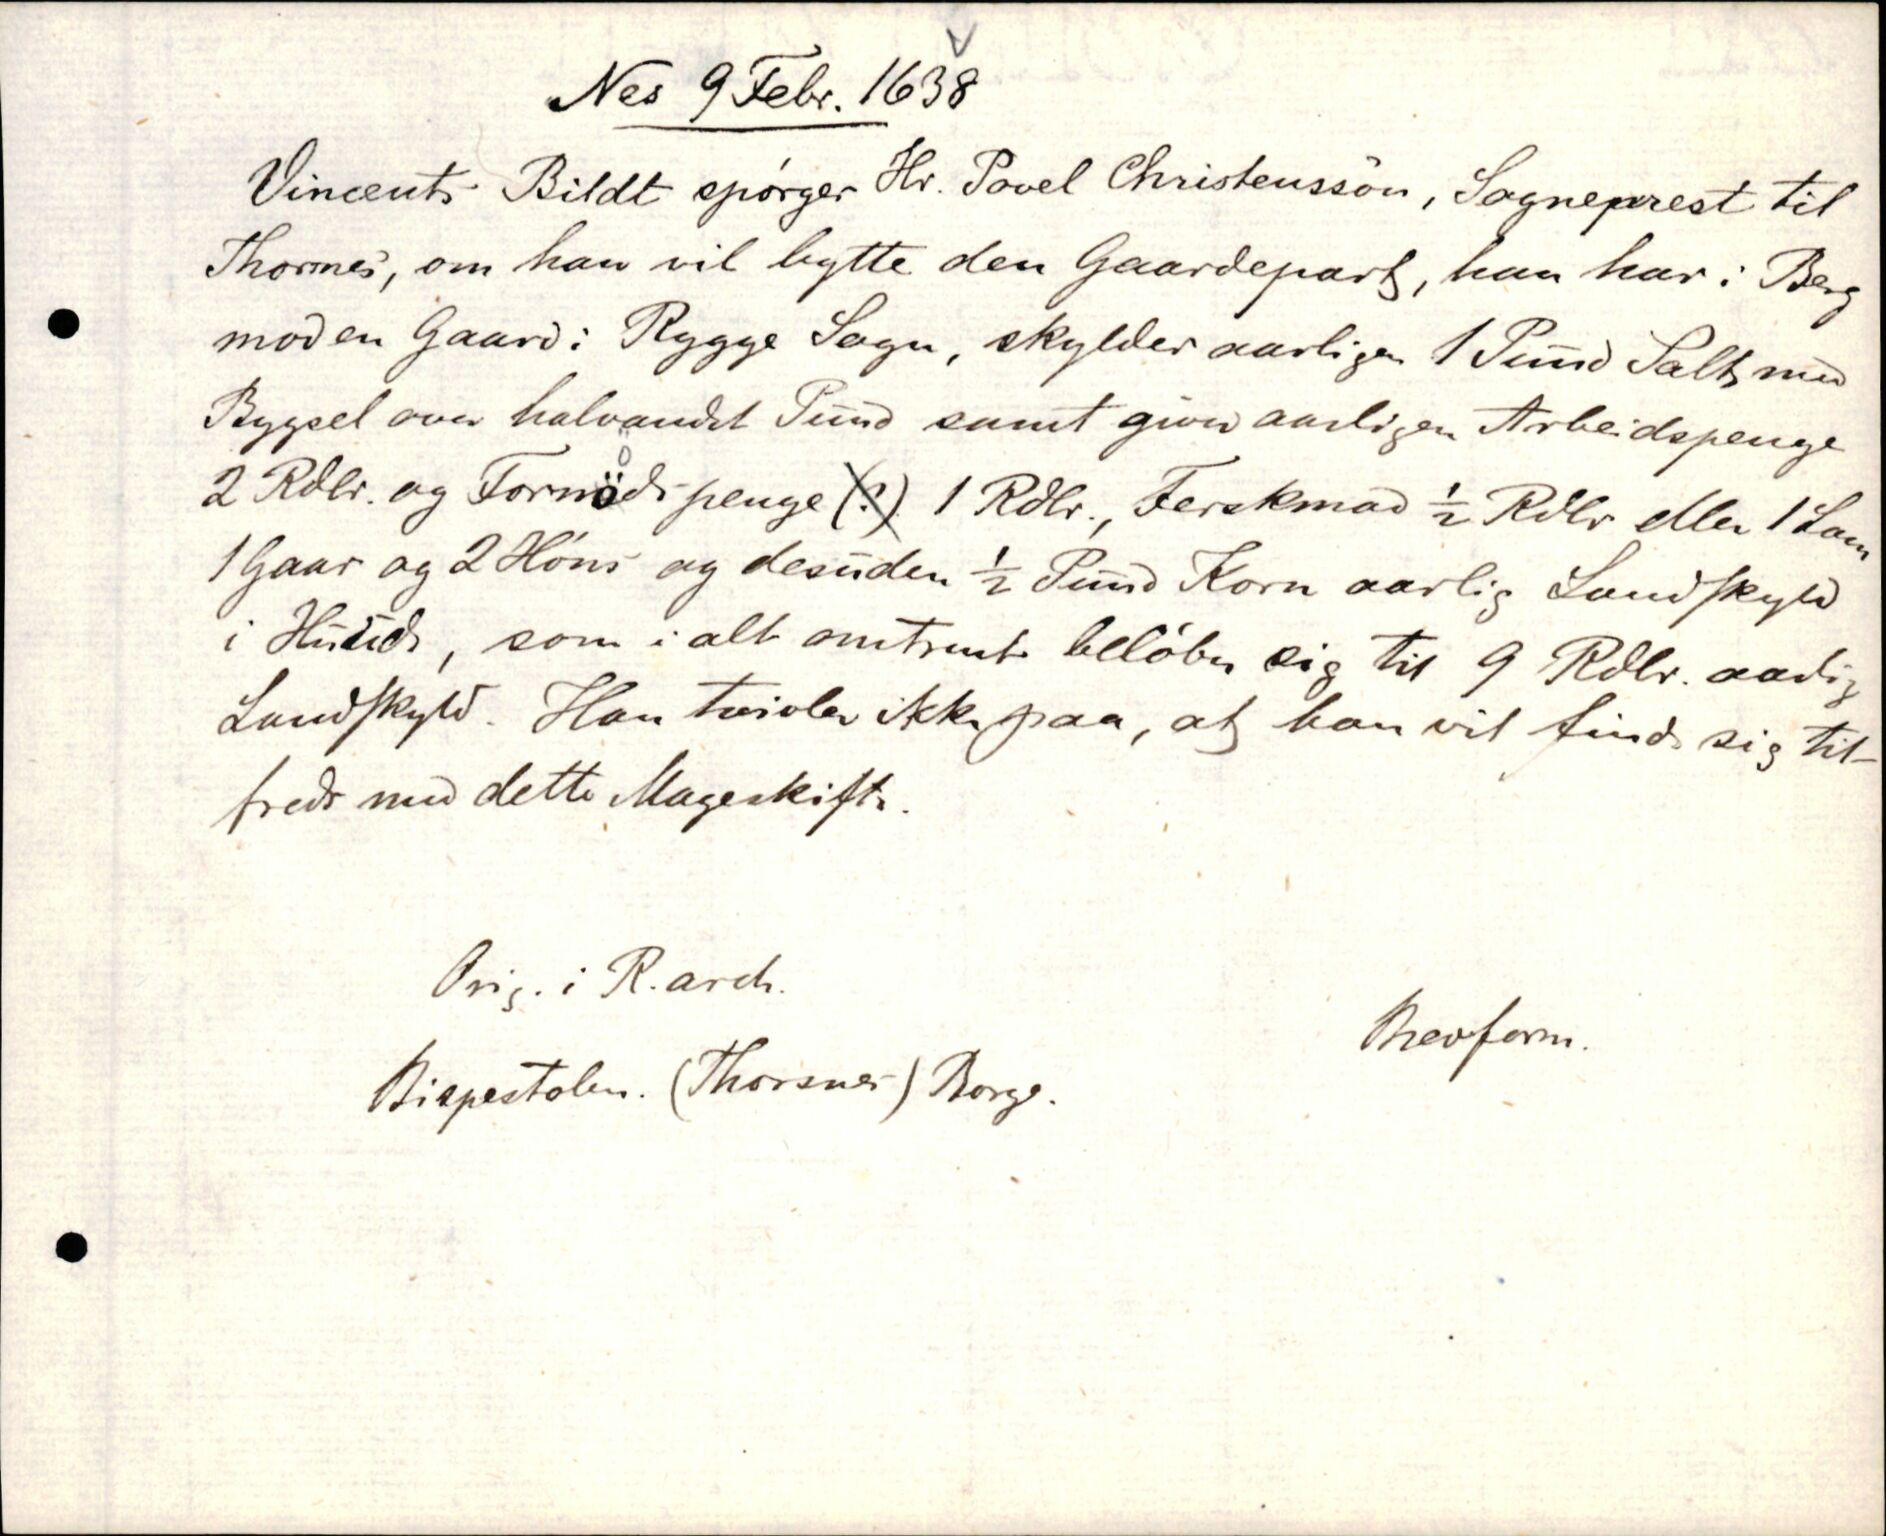 Nes 9 Febr. 1638
Vincents Bildt spörger Hr. Povel Christenssön, Sogneprest til
Thorsnes, om han vil bytte den Gaardepart, han har i Berg
mod en Gaard i Rygge Sogn, skylder aarligen 1 Pund Salt med
Bygsel over halvandet Pund samt giver aarligen Arbeidspenge
2 Rdlr. og Fornödspenge (?) 1 Rdlr., Ferskmad ½ Rdlr eller 1 Lam
1 Gaas og 2 Höns og desuden ½ Pund Korn aarlig Landskyld
i , som i alt omtrent belöber sig til 9 Rdlr. aarlig
Landskyld. Han tvivler ikke paa, at han vil finde sig til-
freds med dette Mageskifte.
Orig. i R. arch.
Brevform.
Bispestolen. (Thorsnes) Borge.